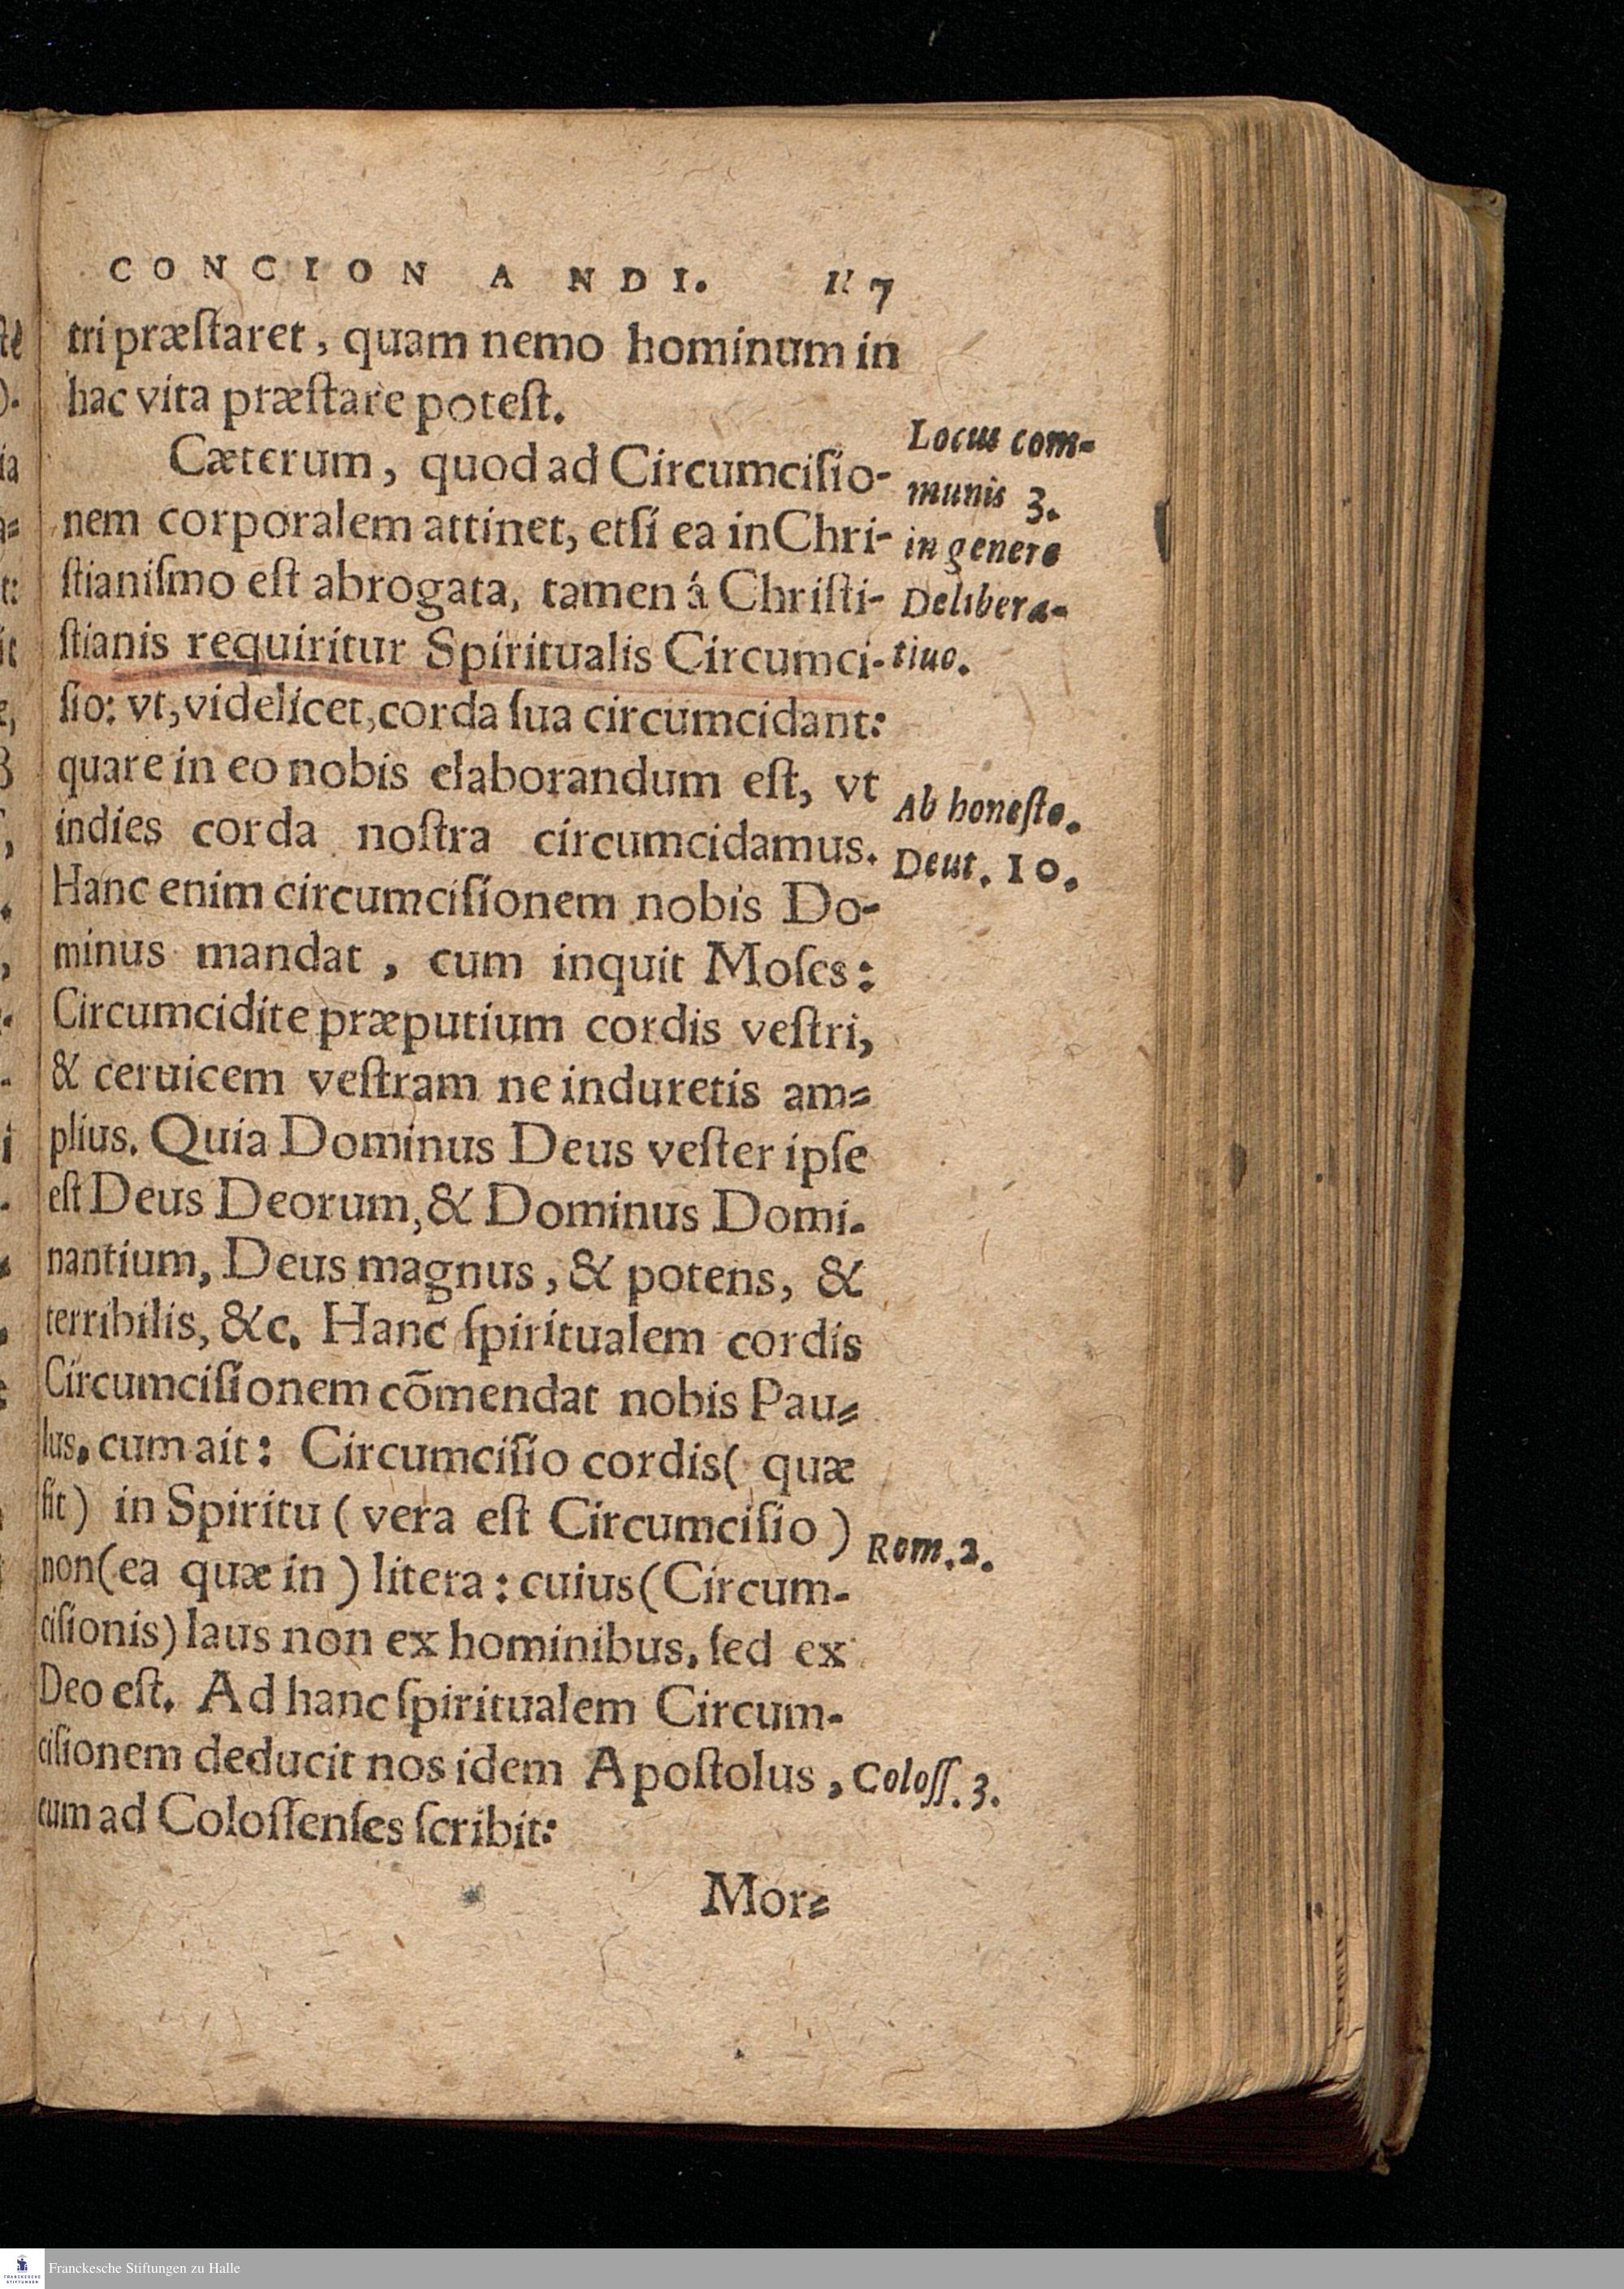 CONCION A NDI. 117
tri præſtaret, quam nemo hominum in
hac vita præſtare poteſt.
Cæterum, quod ad Circumciſio-
nem corporalem attinet, etſi ea in Chri-
ſtianiſmo eſt abrogata, tamen á Chriſti-
ſtianis requiritur Spiritualis Circumci-
ſio: vt, videlicet, corda ſua circumcidant:
quare in eo nobis elaborandum eſt, vt
indies corda noſtra circumcidamus.
Hanc enim circumciſionem nobis Do-
minus mandat, cum inquit Moſes:
Circumcidite præputium cordis veſtri,
& ceruicem veſtram ne induretis am-
plius. Quia Dominus Deus veſter ipſe
eſt Deus Deorum, & Dominus Domi-
nantium, Deus magnus, & potens, &
terribilis, &c. Hanc ſpiritualem cordis
Circumciſionem cōmendat nobis Pau-
lus, cum ait: Circumciſio cordis ( quæ
fit) in Spiritu ( vera eſt Circumciſio )
non (ea quæ in ) litera: cuius (Circum-
ciſionis) laus non ex hominibus, ſed ex
Deo eſt. Ad hanc ſpiritualem Circum-
ciſionem deducit nos idem Apoſtolus,
cum ad Coloſſenſes ſcribit:
Mor-
Locus com-
munis 3.
in genere
Delibera-
tiuo.
Ab honeſto.
Deut. 10.
Rom. 2.
Coloſſ. 3.
Franckesche Stiftungen zu Halle